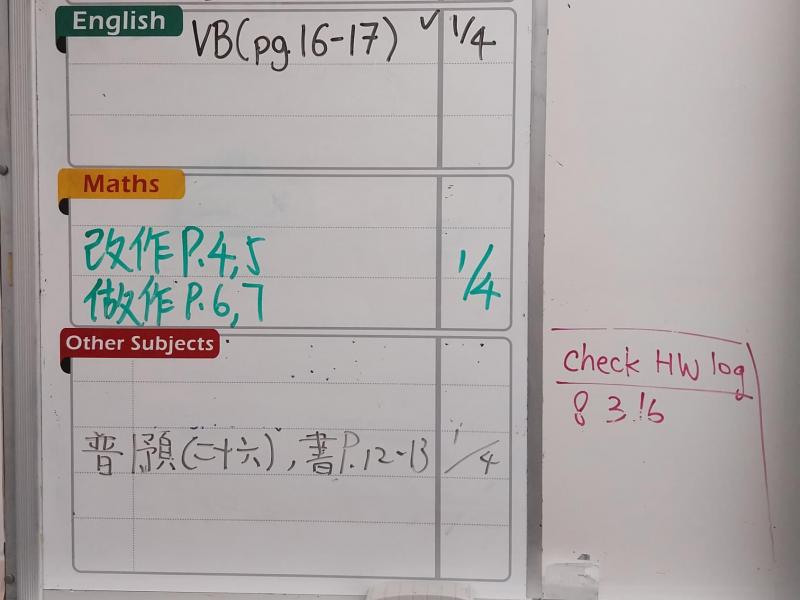 English
VB(pg.16-17) ✓ 1/4
Maths
改作P.4,5
做作P.6,7
1/4
Other Subjects
普預(二十六),書P.12-13 1/4
Check HW log
8 3 16